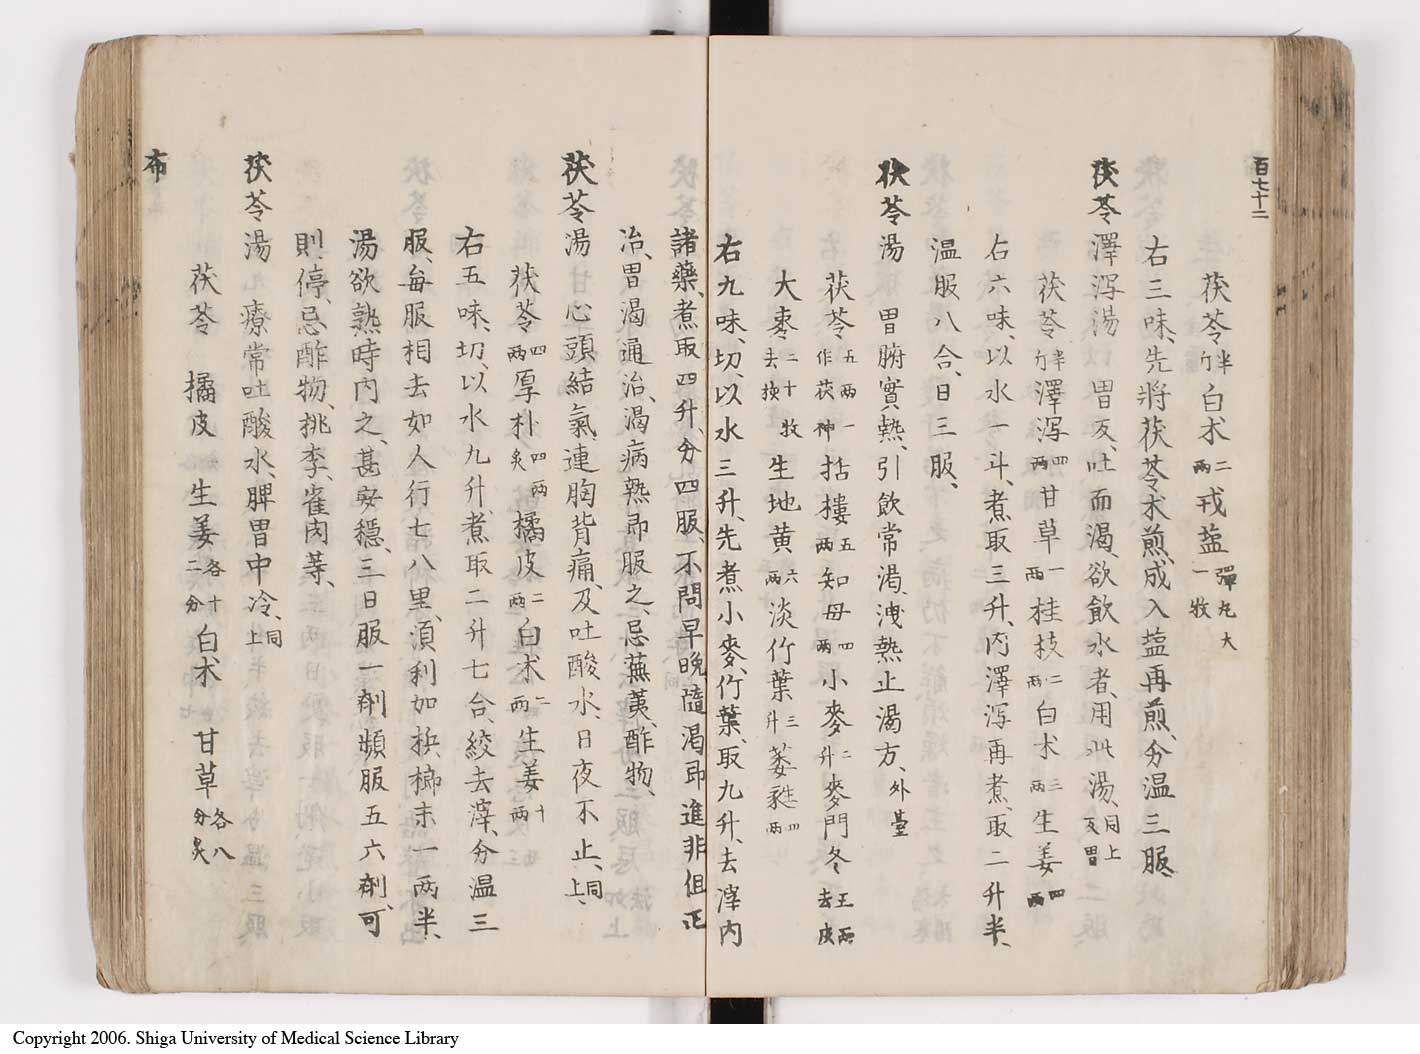 百七十二
茯苓半斤白朮二両戎盐彈丸大一枚
右三味、先將茯苓朮煎、成入盐再煎、分温三服、
茯苓澤泻湯 胃反、吐而渴、欲飲水者、用此湯、同上胃反
茯苓半斤澤泻四両甘草一両桂枝二両白朮三両生姜四両
右六味、以水一斗、煮取三升、内澤泻再煮、取二升半、
温服八合、日三服、
茯苓湯 胃腑實熱、引飲常渴、洩熱止渴方、外臺
茯苓五両一作茯神括樓五両知母四両小麥二升麥門冬五両去皮
大枣二十枚去核生地黄六両淡竹葉三升萎蕤四両
右九味、切、以水三升、先煮小麥、竹葉、取九升、去滓内
諸藥、煮取四升、分四服、不問早晚、隨渴即進非但正
治、胃渴通治、渴病熱即服之、忌蕪荑、酢物、
茯苓湯 心頭結氣、連胸背痛、及吐酸水、日夜不止、同上、
茯苓四両厚朴四両炙橘皮二両白朮二両生姜十両
右五味、切、以水九升、煮取二升七合、絞去滓、分温三
服、每服相去如人行七八里、須利加梹榔末一両半、
湯欲熟時内之、甚安穩、三日服一劑頻服五六劑可
則、停、忌酢物、桃李、雀肉等、
茯苓湯 療常吐酸水、脾胃中冷、同上
茯苓 橘皮 生姜各十二分 白朮 甘草各八分炙
布
Copyright 2006. Shiga University of Medical Science Library